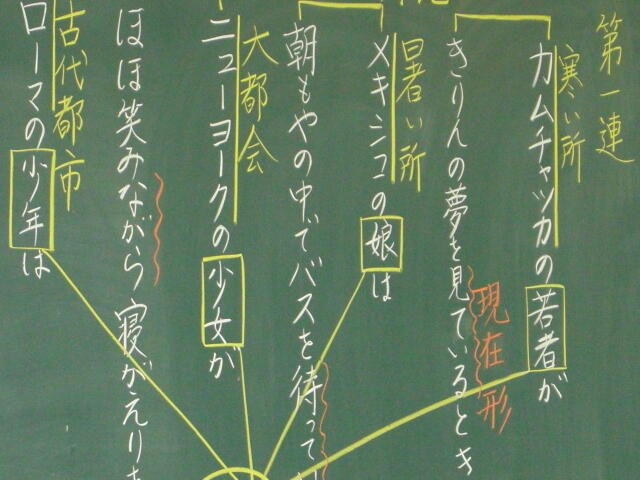 第一連
寒い所
カムチャッカの若者が
現在形
きりんの夢を見ているとき
暑い所
メキシコの娘は
朝もやの中でバスを待って
大都会
ニューヨークの少女が
ほほ笑みながら寝がえりを
古代都市
ローマの少年は